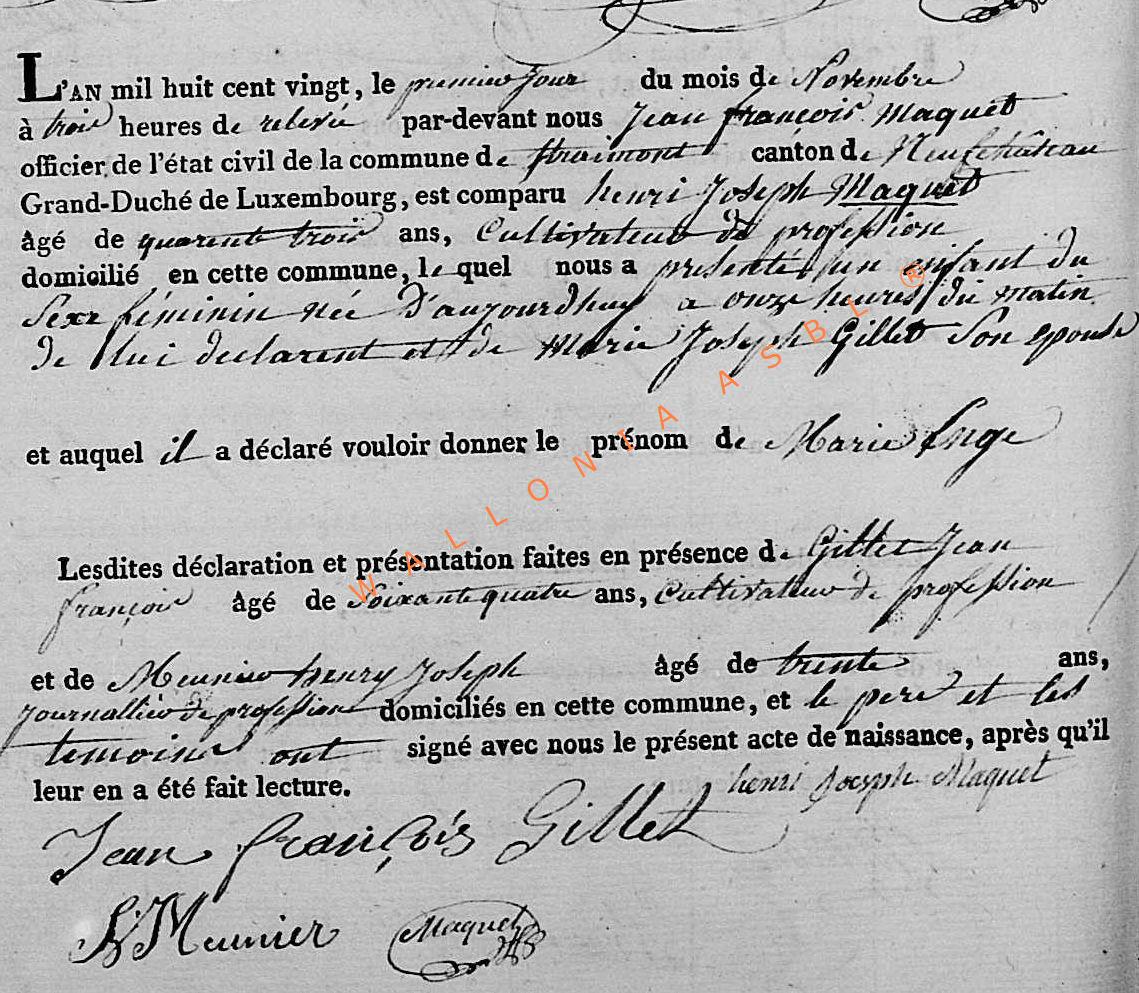 L'AN mil huit cent vingt, le premier Jour du mois de Novembre
à trois heures de relevée par-devant nous Jean françois Maquet
officier de l'état civil de la commune de Straimont canton de Neufchateau
Grand-Duché de Luxembourg, est comparu henri Joseph Maquet
âgé de quarente trois ans, Cultivateur de profession
domicilié en cette commune, le quel nous a presenté un enfant du
Sexe féminin née D'aujourdhuy a onze heures du matin
de lui declarent et de Marie Joseph Gillet Son epouse
et auquel il a déclaré vouloir donner le prénom de Marie Ange
Lesdites déclaration et présentation faites en présence de Gillet Jean
françois âgé de Soixante quatre ans, Cultivateur de profession
et de Meunier henry Joseph âgé de trente ans,
journallier de profession domiciliés en cette commune, et le pere et les
temoins ont signé avec nous le présent acte de naissance, après qu'il
leur en a été fait lecture. henri Joesph Maquet
Jean françois Gillet
Meunier Maquet
WALLONIA ASBL ®